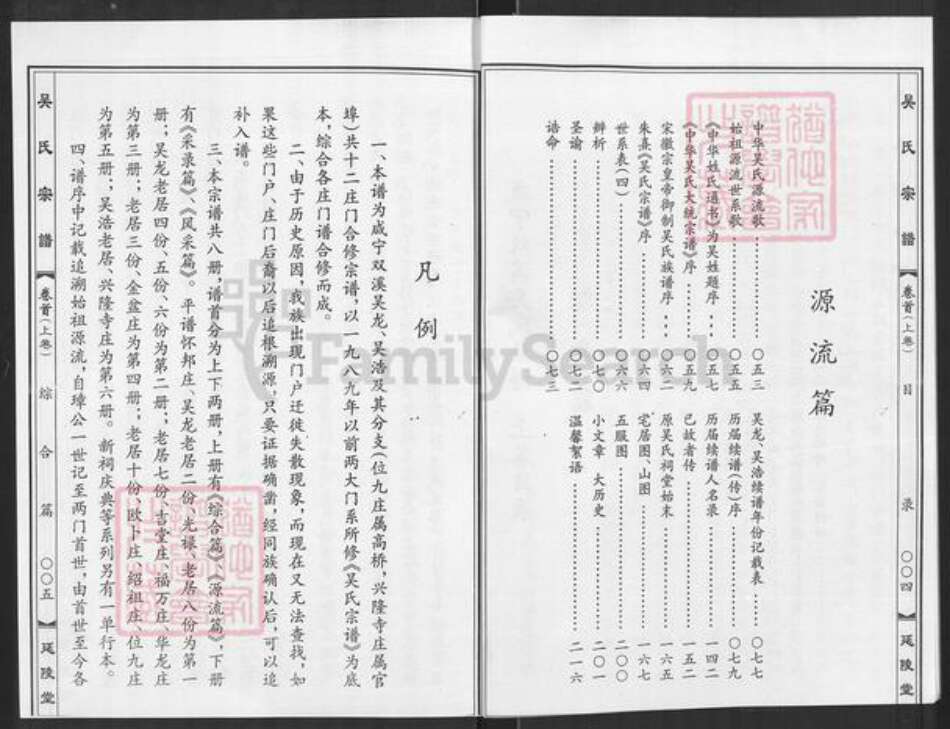 吴氏宗谱
卷首（上卷）
目录
〇〇四
延陵堂
源流篇
中华吴氏源流歌……〇五三
始祖源流世系歌……〇五五
《中华姓氏通书》为吴姓题序……〇五七
《中华吴氏大统宗谱》序……〇五九
宋徽宗皇帝御制吴氏族谱序……〇六二
朱熹《吴氏宗谱》序……〇六四
世系表（四）……〇六六
辨析……〇七〇
圣谕……〇七二
诰命……〇七三
吴龙、吴浩续谱年份记载表……〇七七
历届续谱（传）序……〇七九
历届续谱人名录……一四二
已故者传……一五二
原吴氏祠堂始末……一六五
宅居图、山图……一六七
五服图……二〇〇
小文章 大历史……二〇一
温馨絮语……二一六
凡例
一、本谱为咸宁双溪吴龙、吴浩及其分支（位九庄属高桥，兴隆寺庄属官
埠）共十二庄门合修宗谱，以一九八九年以前两大门系所修《吴氏宗谱》为底
本，综合各庄门谱合修而成。
二、由于历史原因，我族出现门户迁徙失散现象，而现在又无法查找，如
果这些门户、庄门后裔以后追根溯源，只要证据确凿，经同族确认后，可以追
补入谱。
三、本宗谱共八册，谱首分为上下两册，上册有《综合篇》、《源流篇》，下册
有《采录篇》、《风采篇》。平谱怀邦庄、吴龙老居二份、光禄、老居八份为第一
册；吴龙老居四份、五份、六份为第二册；老居七份、吉堂庄、福万庄、华龙庄
为第三册；老居三份、金盆庄为第四册；老居十份、欧卜庄、绍祖庄、位九庄
为第五册；吴浩老居、兴隆寺庄为第六册。新祠庆典等系列另有一单行本。
四、谱序中记载追溯始祖源流，自璋公一世记至两门首世，由首世至今各
吴氏宗谱
卷首（上卷）
综合篇
〇〇五
延陵堂
FamilySearch